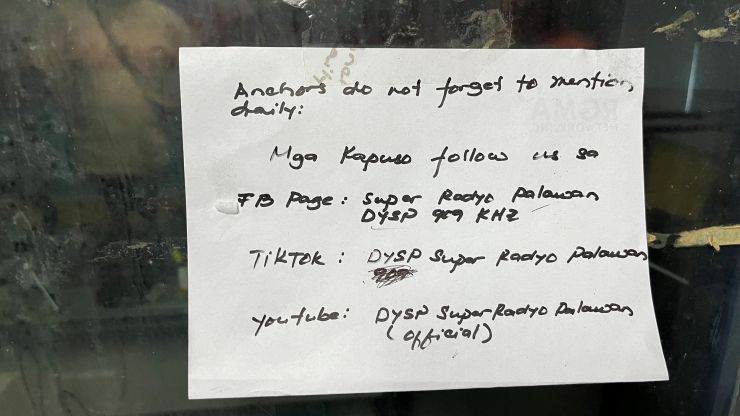 Anchors do not forget to mention
daily:
Mga Kapuso follow us sa
FB Page: Super Radyo Palawan
DYSP 909 KHZ
TikTok: DYSP Super Radyo Palawan
Youtube: DYSP Super Radyo Palawan
(official)
RGMA
NETWORK, INC.